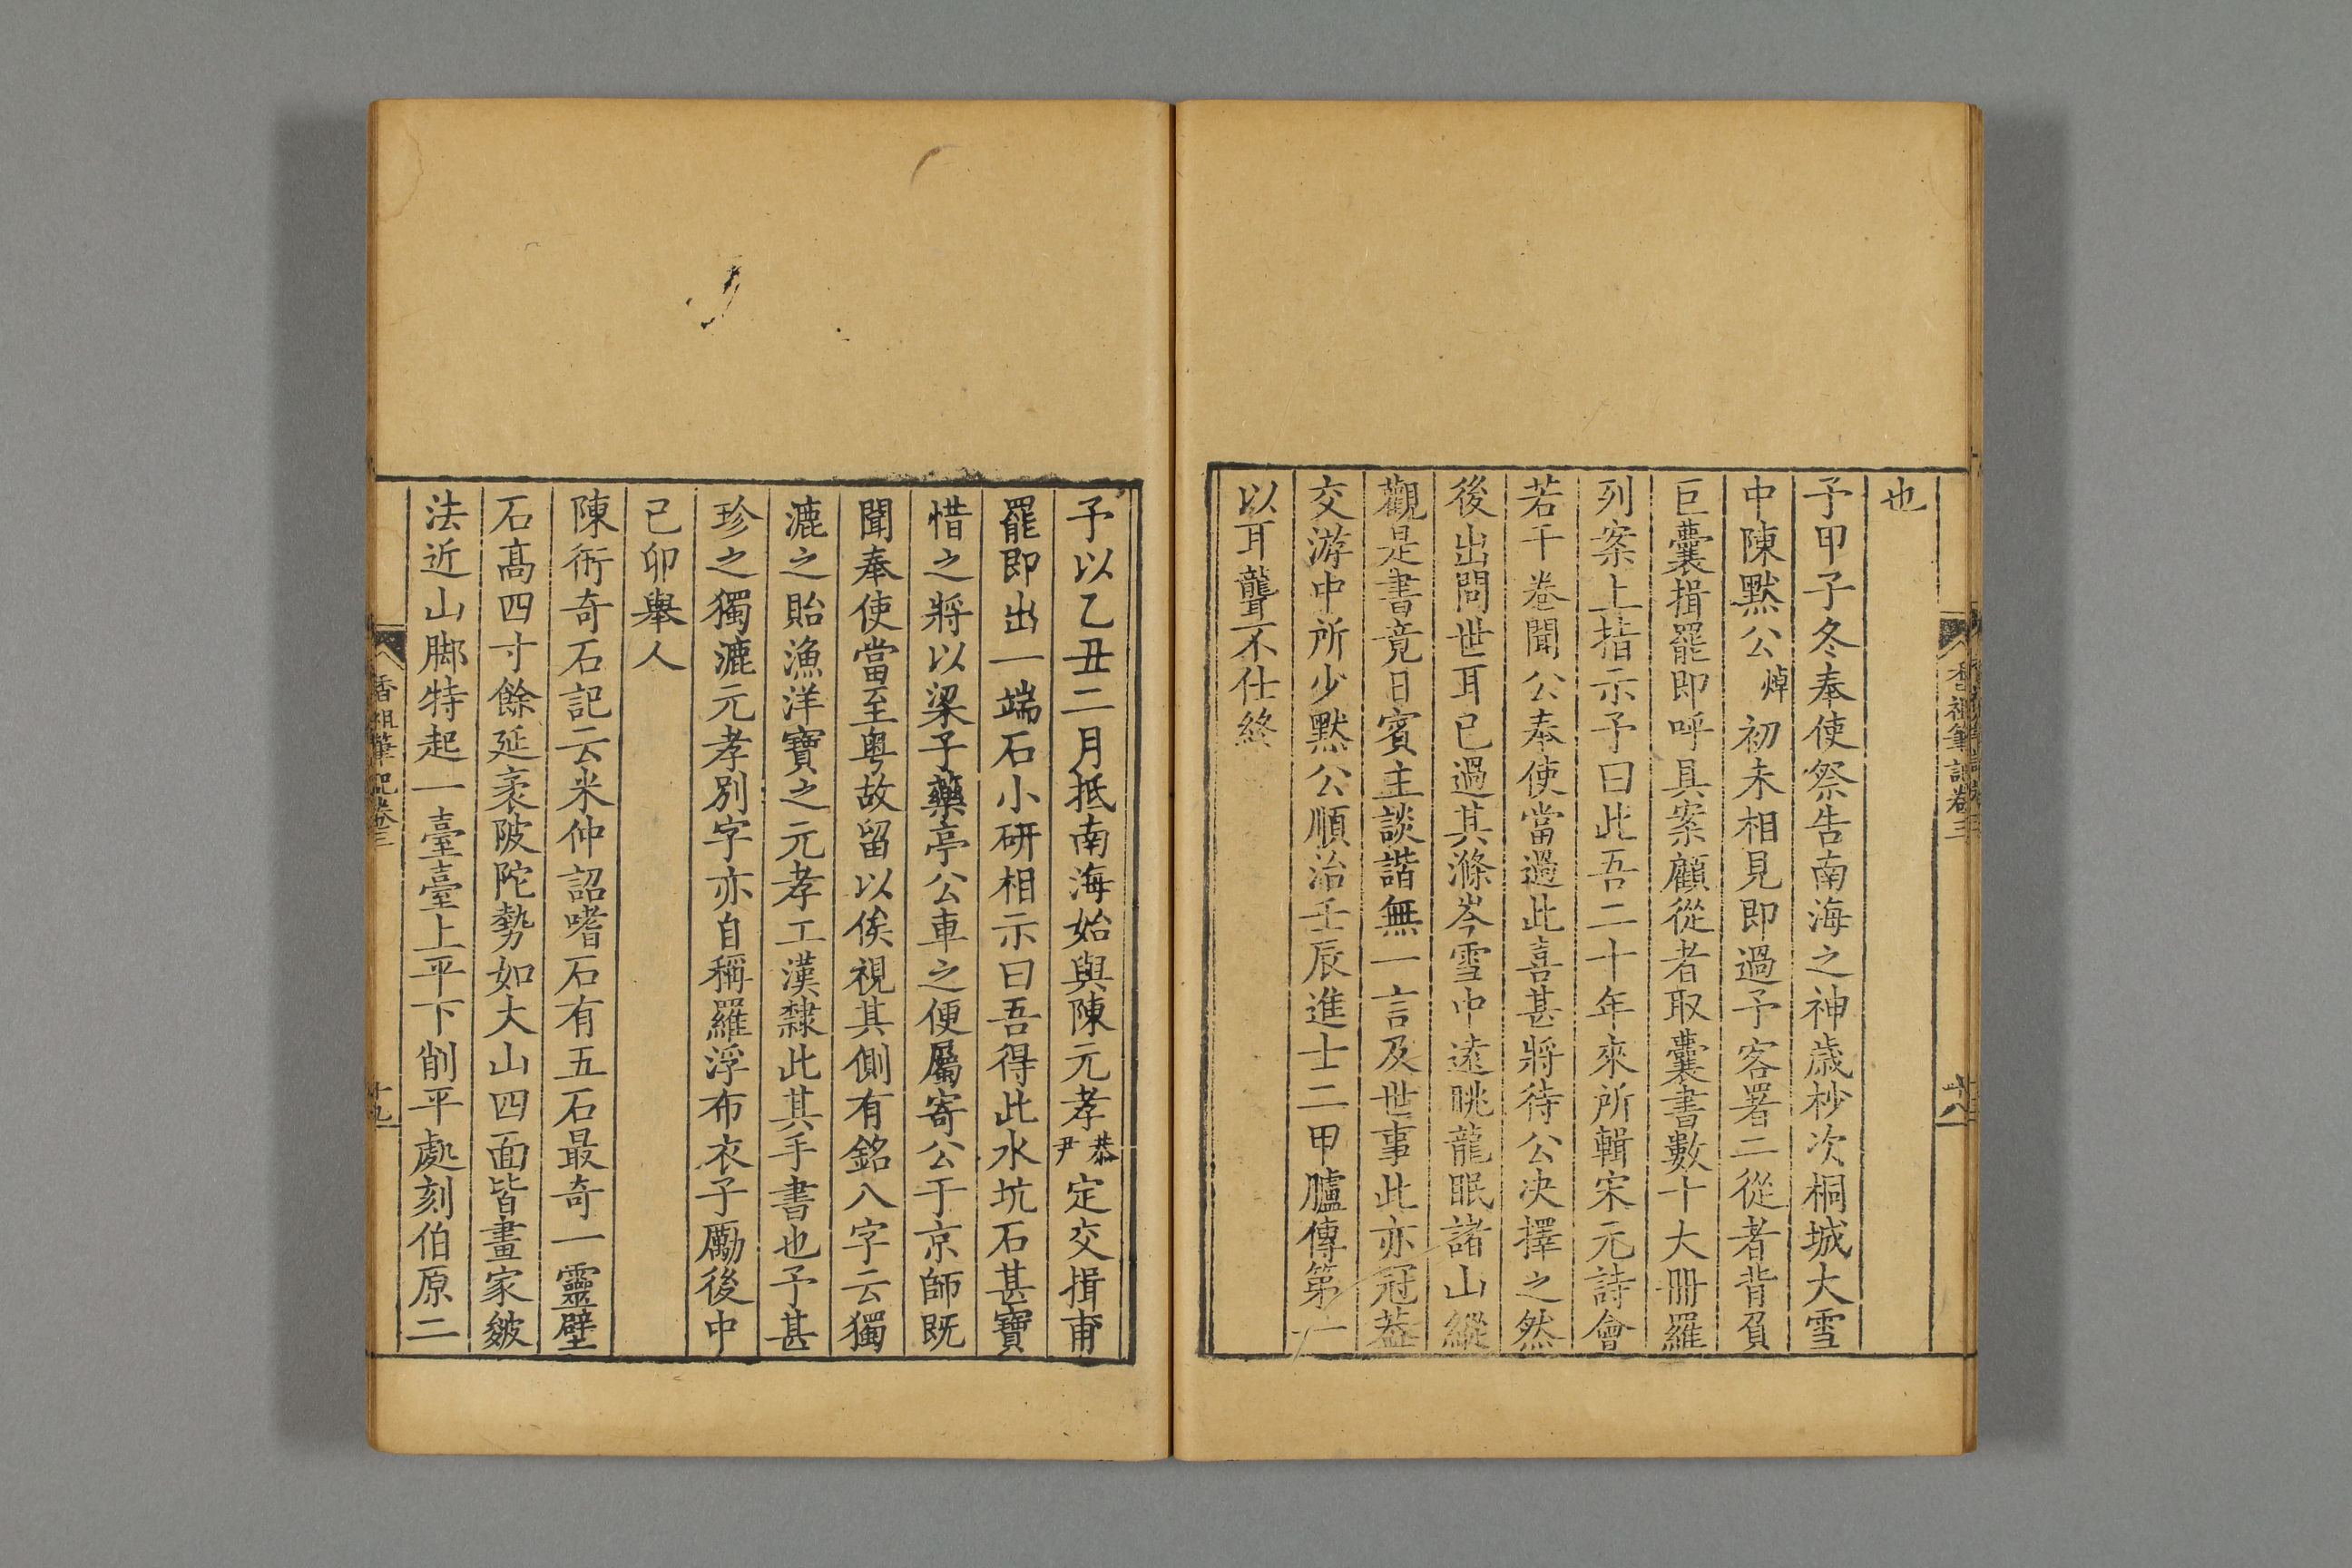 香祖筆記卷三
十八
也
予甲子冬奉使祭告南海之神歲杪次桐城大雪
中陳默公焯初未相見即過予客署二從者背負
巨囊揖罷即呼具案顧從者取囊書數十大冊羅
列案上指示予曰此吾二十年來所輯宋元詩會
若干卷聞公奉使當過此喜甚將待公決擇之然
後出問世耳已過其滌岑雪中遠眺龍眠諸山縱
觀是書竟日賓主談諧無一言及世事此亦冠葢
交游中所少默公順治壬辰進士二甲臚傳第一
以耳聾不仕終
予以乙丑二月抵南海始與陳元孝恭尹定交揖甫
罷即出一端石小研相示曰吾得此水坑石甚寶
惜之將以梁子藥亭公車之便屬寄公于京師既
聞奉使當至粤故留以俟視其側有銘八字云獨
漉之貽漁洋寶之元孝工漢隸此其手書也予甚
珍之獨漉元孝別字亦自稱羅浮布衣子勵後中
己卯舉人
陳衎奇石記云米仲詔嗜石有五石最奇一靈壁
石高四寸餘延袤陂陀勢如大山四面皆畫家皴
法近山脚特起一臺臺上平下削平處刻伯原二
香祖筆記卷三
十九